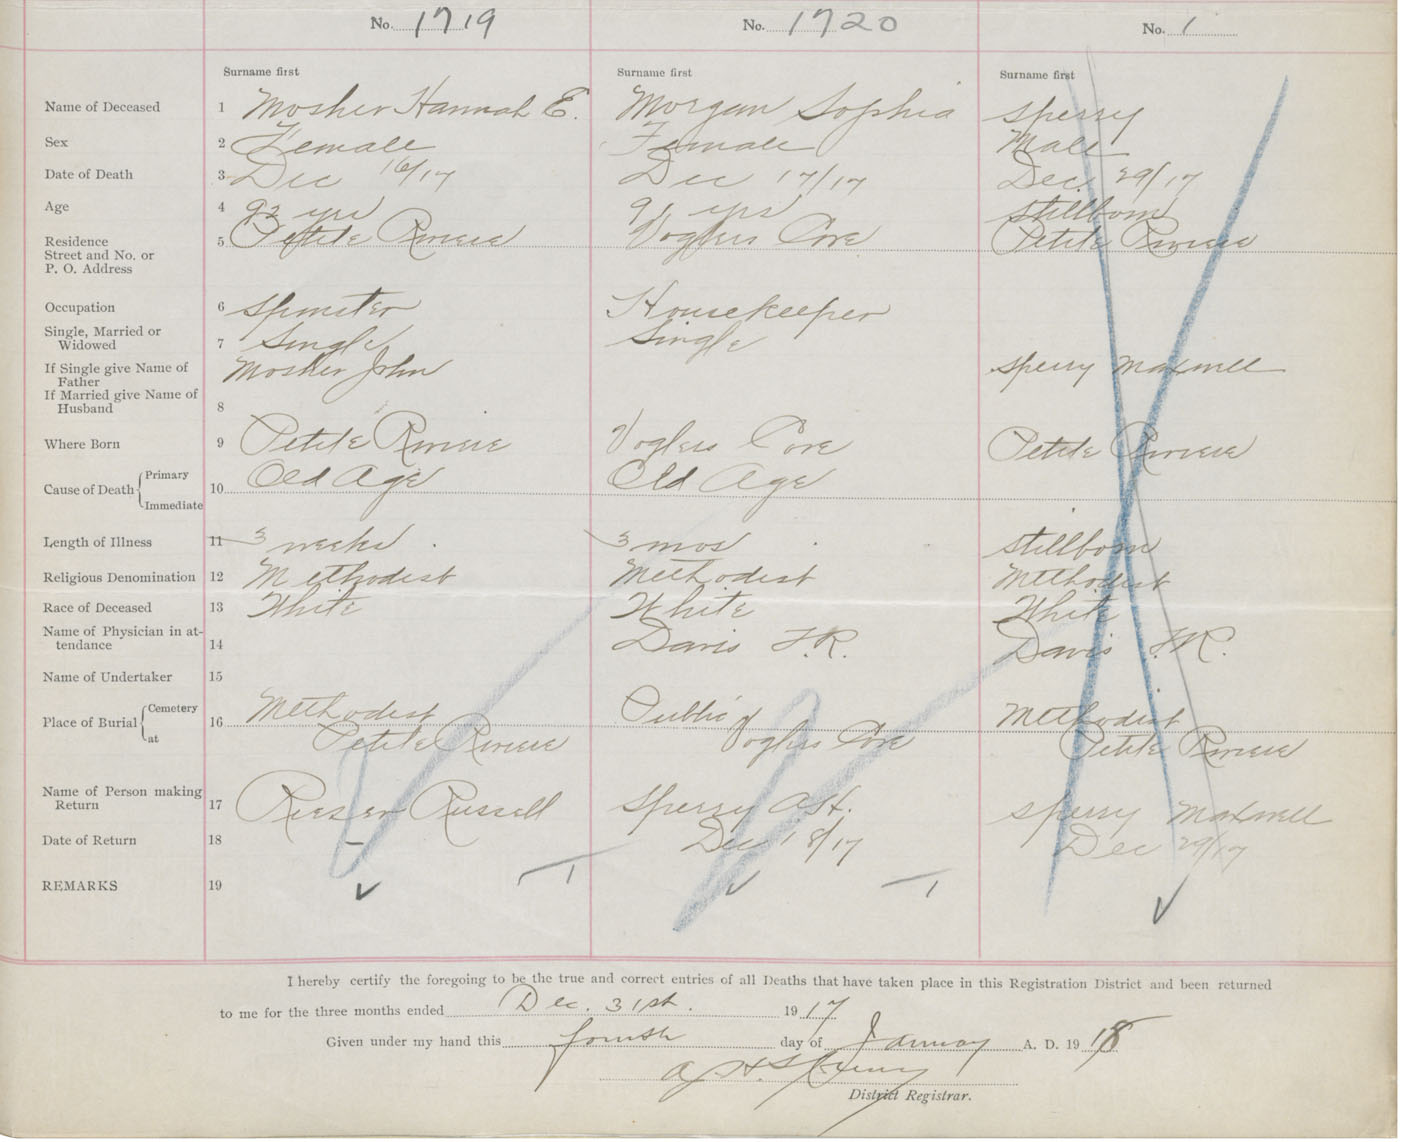 No. 1719 No. 1720 No. 1
Surname first Surname first Surname first
Name of Deceased 1 Mosher Hannah E. Morgan Sophia Sperry
Sex 2 Female Female Male
Date of Death 3 Dec 16/17 Dec 17/17 Dec. 29/17
Age 4 92 yrs 91 yrs Stillborn
Residence 5 Petite Riviere Voglers Cove Petite Riviere
Street and No. or
P. O. Address
Occupation 6 Spinster Housekeeper
Single, Married or
Widowed 7 Single Single
If Single give Name of Mosher John Sperry Maxwell
Father
If Married give Name of
Husband 8
Where Born 9 Petite Riviere Voglers Cove Petite Riviere
Primary Old Age Old Age
Cause of Death 10
Immediate
Length of Illness 11 3 weeks. 3 mos. Stillborn
Religious Denomination 12 Methodist Methodist Methodist
Race of Deceased 13 White White White
Name of Physician in at-
tendance 14 Davis F.R. Davis F.R.
Name of Undertaker 15
Cemetery Methodist Public Methodist
Place of Burial 16
at Petite Riviere Voglers Cove Petite Riviere
Name of Person making
Return 17 Russell Sperry A.H. Sperry Maxwell
Date of Return 18 – Dec 18/17 Dec 29/17
REMARKS 19
I hereby certify the foregoing to be the true and correct entries of all Deaths that have taken place in this Registration District and been returned
to me for the three months ended Dec. 31st. 1917
Given under my hand this fourth day of January A. D. 1918
A. H. Sperry
District Registrar.